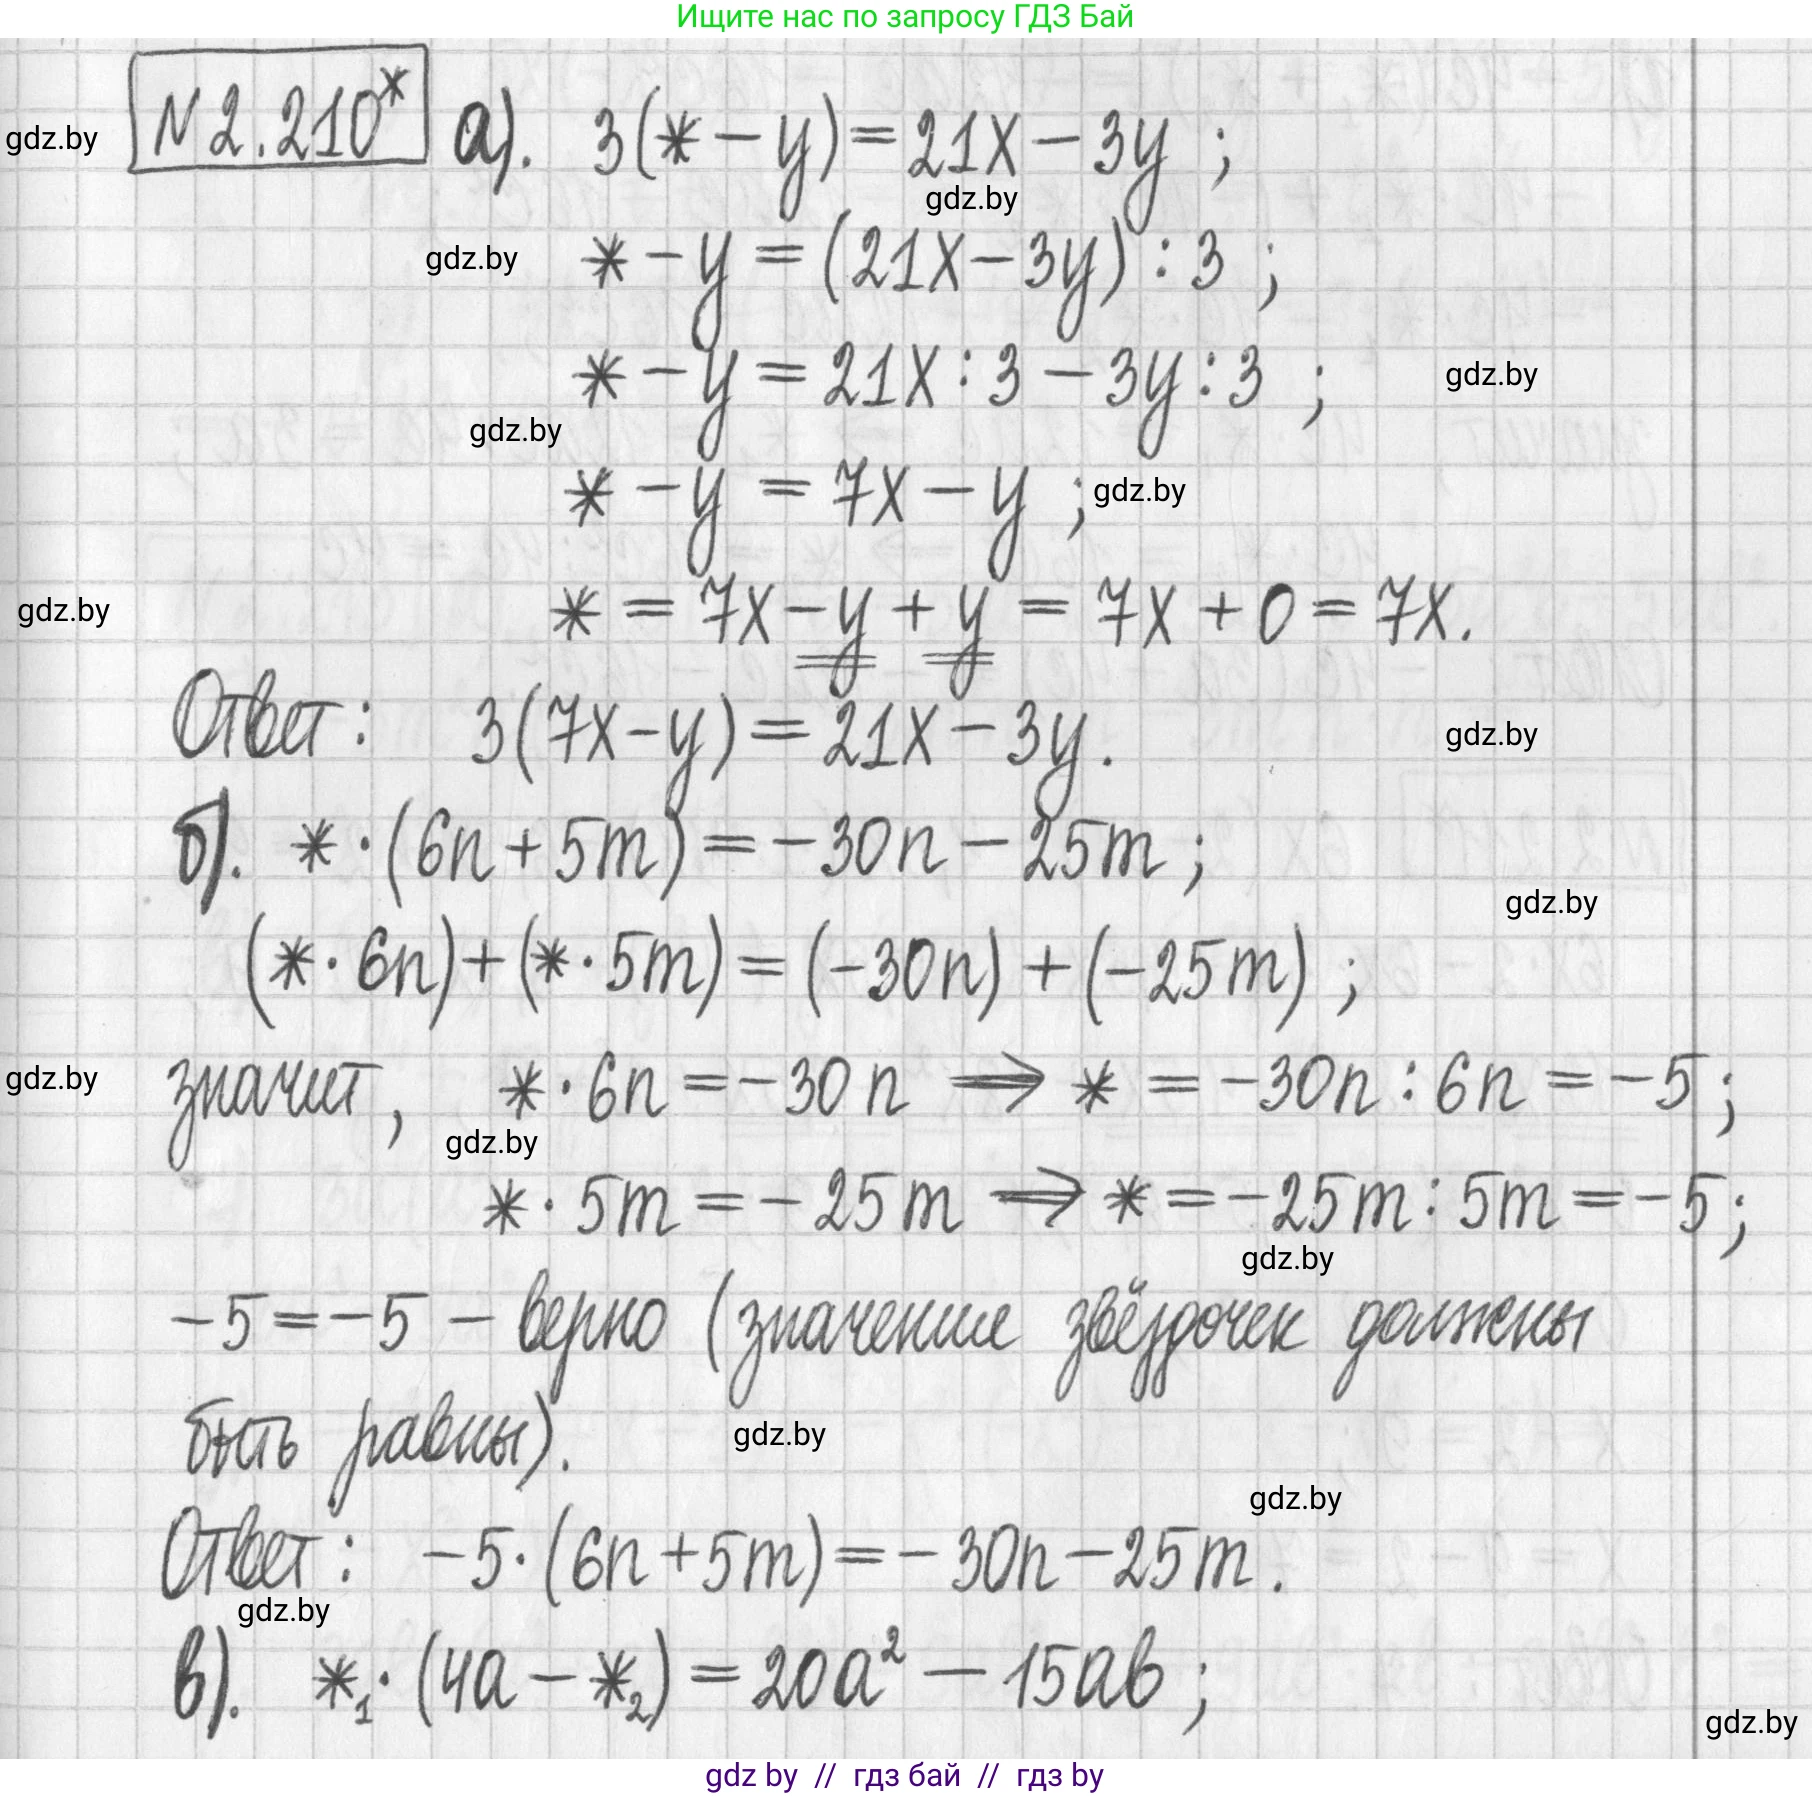 Ищите нас по запросу ГДЗ Бай
N 2.210* а). 3(* − y) = 21x − 3y ;
gdz.by
gdz.by
* − y = (21x − 3y) : 3 ;
gdz.by
* − y = 21x : 3 − 3y : 3 ;
gdz.by
gdz.by
* − y = 7x − y ;
gdz.by
* = 7x − y + y = 7x + 0 = 7x.
gdz.by
Ответ: 3(7x − y) = 21x − 3y.
gdz.by
б). * · (6n + 5m) = −30n − 25m ;
gdz.by
(* · 6n) + (* · 5m) = (−30n) + (−25m) ;
значит, * · 6n = −30n ⇒ * = −30n : 6n = −5 ;
gdz.by
gdz.by
* · 5m = −25m ⇒ * = −25m : 5m = −5 ;
gdz.by
−5 = −5 − верно (значение звёздочек должны
быть равны).
gdz.by
gdz.by
Ответ: −5 · (6n + 5m) = −30n − 25m.
gdz.by
в). *₁ · (4a − *₂) = 20a² − 15ab ;
gdz.by
gdz by // гдз бай // гдз by